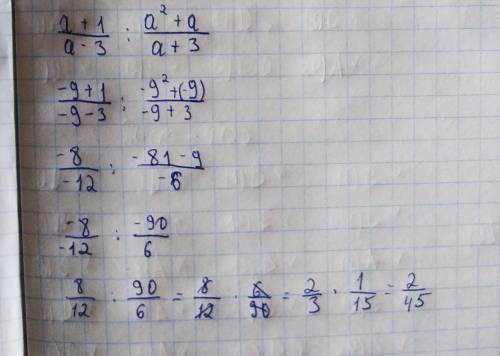 (a + 1)/(a - 3) : (a² + a)/(a + 3)
(-9 + 1)/(-9 - 3) : (-9² + (-9))/(-9 + 3)
(-8)/(-12) : (-81 - 9)/(-6)
(-8)/(-12) : (-90)/(6)
8/12 : 90/6 = 8/12 · 6/90 = 2/3 · 1/15 = 2/45